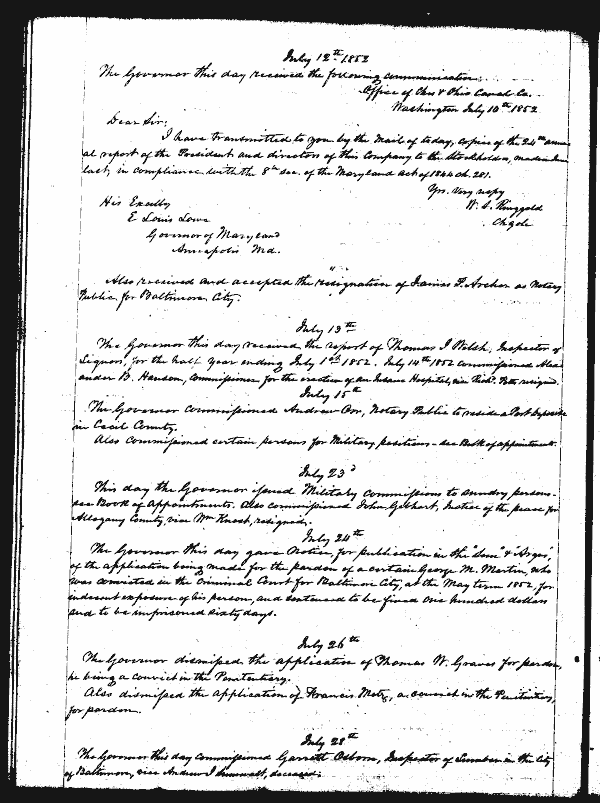 July 12th 1852
The Governor this day received the following communication.
Office of Ches & Ohio Canal Co.
Washington July 10th 1852
Dear Sir:
I have transmitted to you by the mail of today, copies of the 24th annu
al report of the President and directors of this Company to the Stockholders, made in June
last, in compliance with the 8th sec. of the Maryland act of 1844 ch. 281.
Yrs. very respy
W. S. Ringgold
His Excelly
E Louis Lowe
Governor of Maryland
Annapolis Md.
Also received and accepted the resignation of James F. Archer as Notary
Public for Baltimore City.
July 13th
The Governor this day received the report of Thomas J Welsh, Inspector of
Liquors, for the half year ending July 1st 1852. July 14th 1852 commissioned Alex
ander B. Hanson, Commissioner for the erection of an Insane Hospital, vice resigned.
July 15th
The Governor commissioned Andrew Orr, Notary Public to reside a Port Deposite
in Cecil County.
Also commissioned certain persons for Military positions - see Book of appointments.
July 23d
This day the Governor issued Military commissions to sundry persons -
see Book of Appointments. Also commissioned John Gebhart, Justice of the peace for
Allegany County, vice Wm Knost, resigned.
July 24th
The Governor this day gave Notice, for publication in the "Sun" & "Argus",
of the application being made for the pardon of a certain George M. Martin, who
was convicted in the Criminal Court for Baltimore City, at the May term 1852, for
indecent exposure of his person, and sentenced to be fined one hundred dollars
and to be imprisoned sixty days.
July 26th
The Governor dismissed the application of Thomas W. Graves for pardon,
he being a convict in the Penitentiary.
Also dismissed the application of Francis Metz, a convict in the Penitentiary,
for pardon.
July 28th
The Governor this day commissioned Garrett Osborn, Inspector of Lumber in the City
of Baltimore, vice Andrew J deceased.